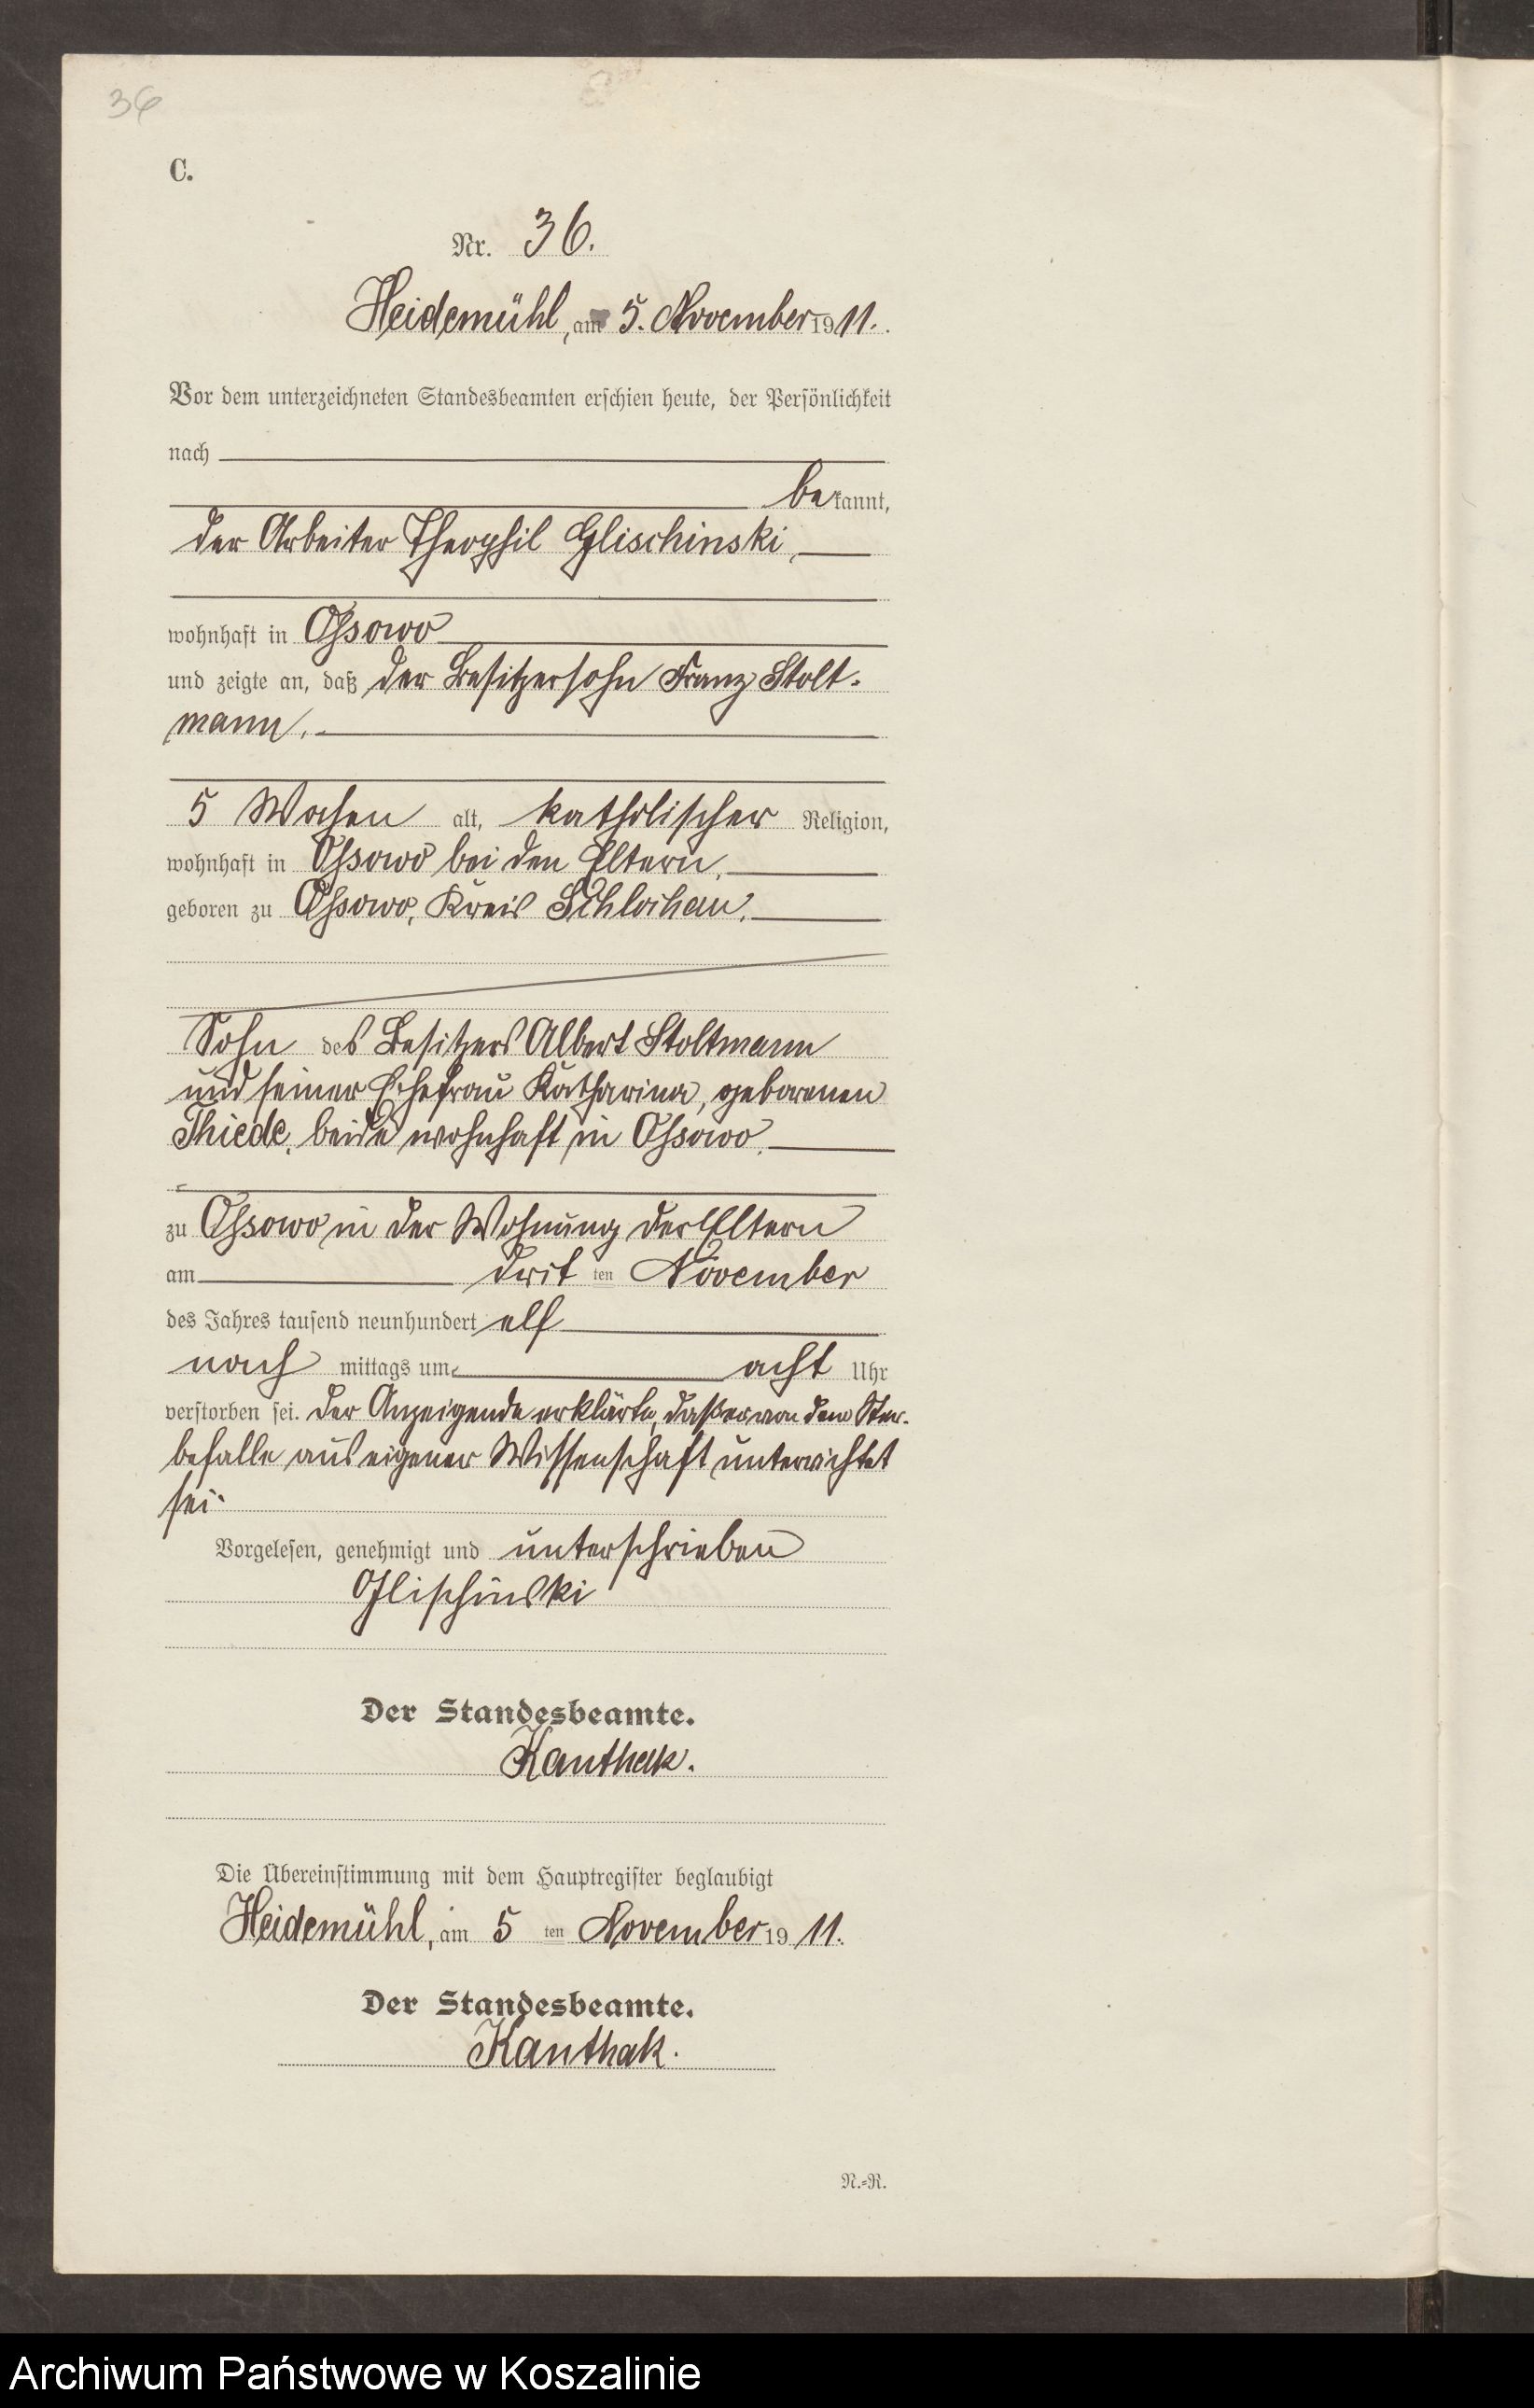 36
C.
Nr. 36.
Heidemühl, am 5. November 1911.
Vor dem unterzeichneten Standesbeamten erschien heute, der Persönlichkeit
nach
bekannt,
der Arbeiter Theophil Glischinski,
wohnhaft in Ossowo
und zeigte an, daß der Besitzersohn Franz Stolt-
mann,
5 Wochen alt, katholischer Religion,
wohnhaft in Ossowo bei den Eltern,
geboren zu Ossowo, Kreis Schlochau,
Sohn des Besitzers Albert Stoltmann
und seiner Ehefrau Katharina, geborenen
Thiede, beide wohnhaft in Ossowo,
zu Ossowo in der Wohnung der Eltern
am dritten November
des Jahres tausend neunhundert elf
nach mittags um acht Uhr
verstorben sei. Der Anzeigende erklärte, daß er von dem Ster-
befalle aus eigener Wissenschaft unterrichtet
sei.
Vorgelesen, genehmigt und unterschrieben
Glischinski
Der Standesbeamte.
Kanthak.
Die Übereinstimmung mit dem Hauptregister beglaubigt
Heidemühl, am 5ten November 1911.
Der Standesbeamte.
Kanthak.
N.=R.
Archiwum Państwowe w Koszalinie